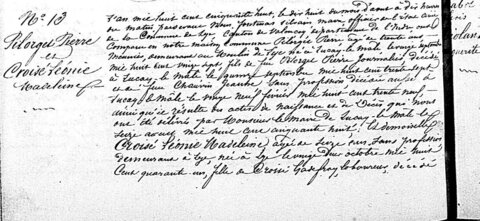 No 13
Pilorget Pierre
et
Croisé Léonie
Madeleine
L'an mil huit cent cinquante huit, le dix huit du mois d'août à dix heures
du matin, pardevant Nous, Silvain, maire, officier de l'état civil
de la Commune de Lye, Canton de Valençay, département de l'Indre, sont
Comparu en notre maison Commune Pilorget Pierre, âgé de trente ans
demeurant au Bourg de Lye né à Luçay le Mâle le septembre
mil huit cent vingt sept, fils de feu Pilorget Pierre Journalier, décédé
à Luçay le Mâle le quinze septembre mil huit cent trente
et de feue Chauvin Jeanne Sans profession décédée aussi à
Luçay le Mâle le vingt neuf février mil huit cent trente neuf,
ainsi qu'il résulte des actes de naissance et de Décès que nous
ont été délivrés par Monsieur le Maire de Luçay le Mâle le
seize août mil huit cent cinquante huit; Et Demoiselle
Croisé Léonie Madeleine âgée de Seize ans, Sans profession
demeurant à Lye née à Lye le vingt octobre mil huit
Cent quarante un, fille de Croisé Godefroy, laboureur, décédé